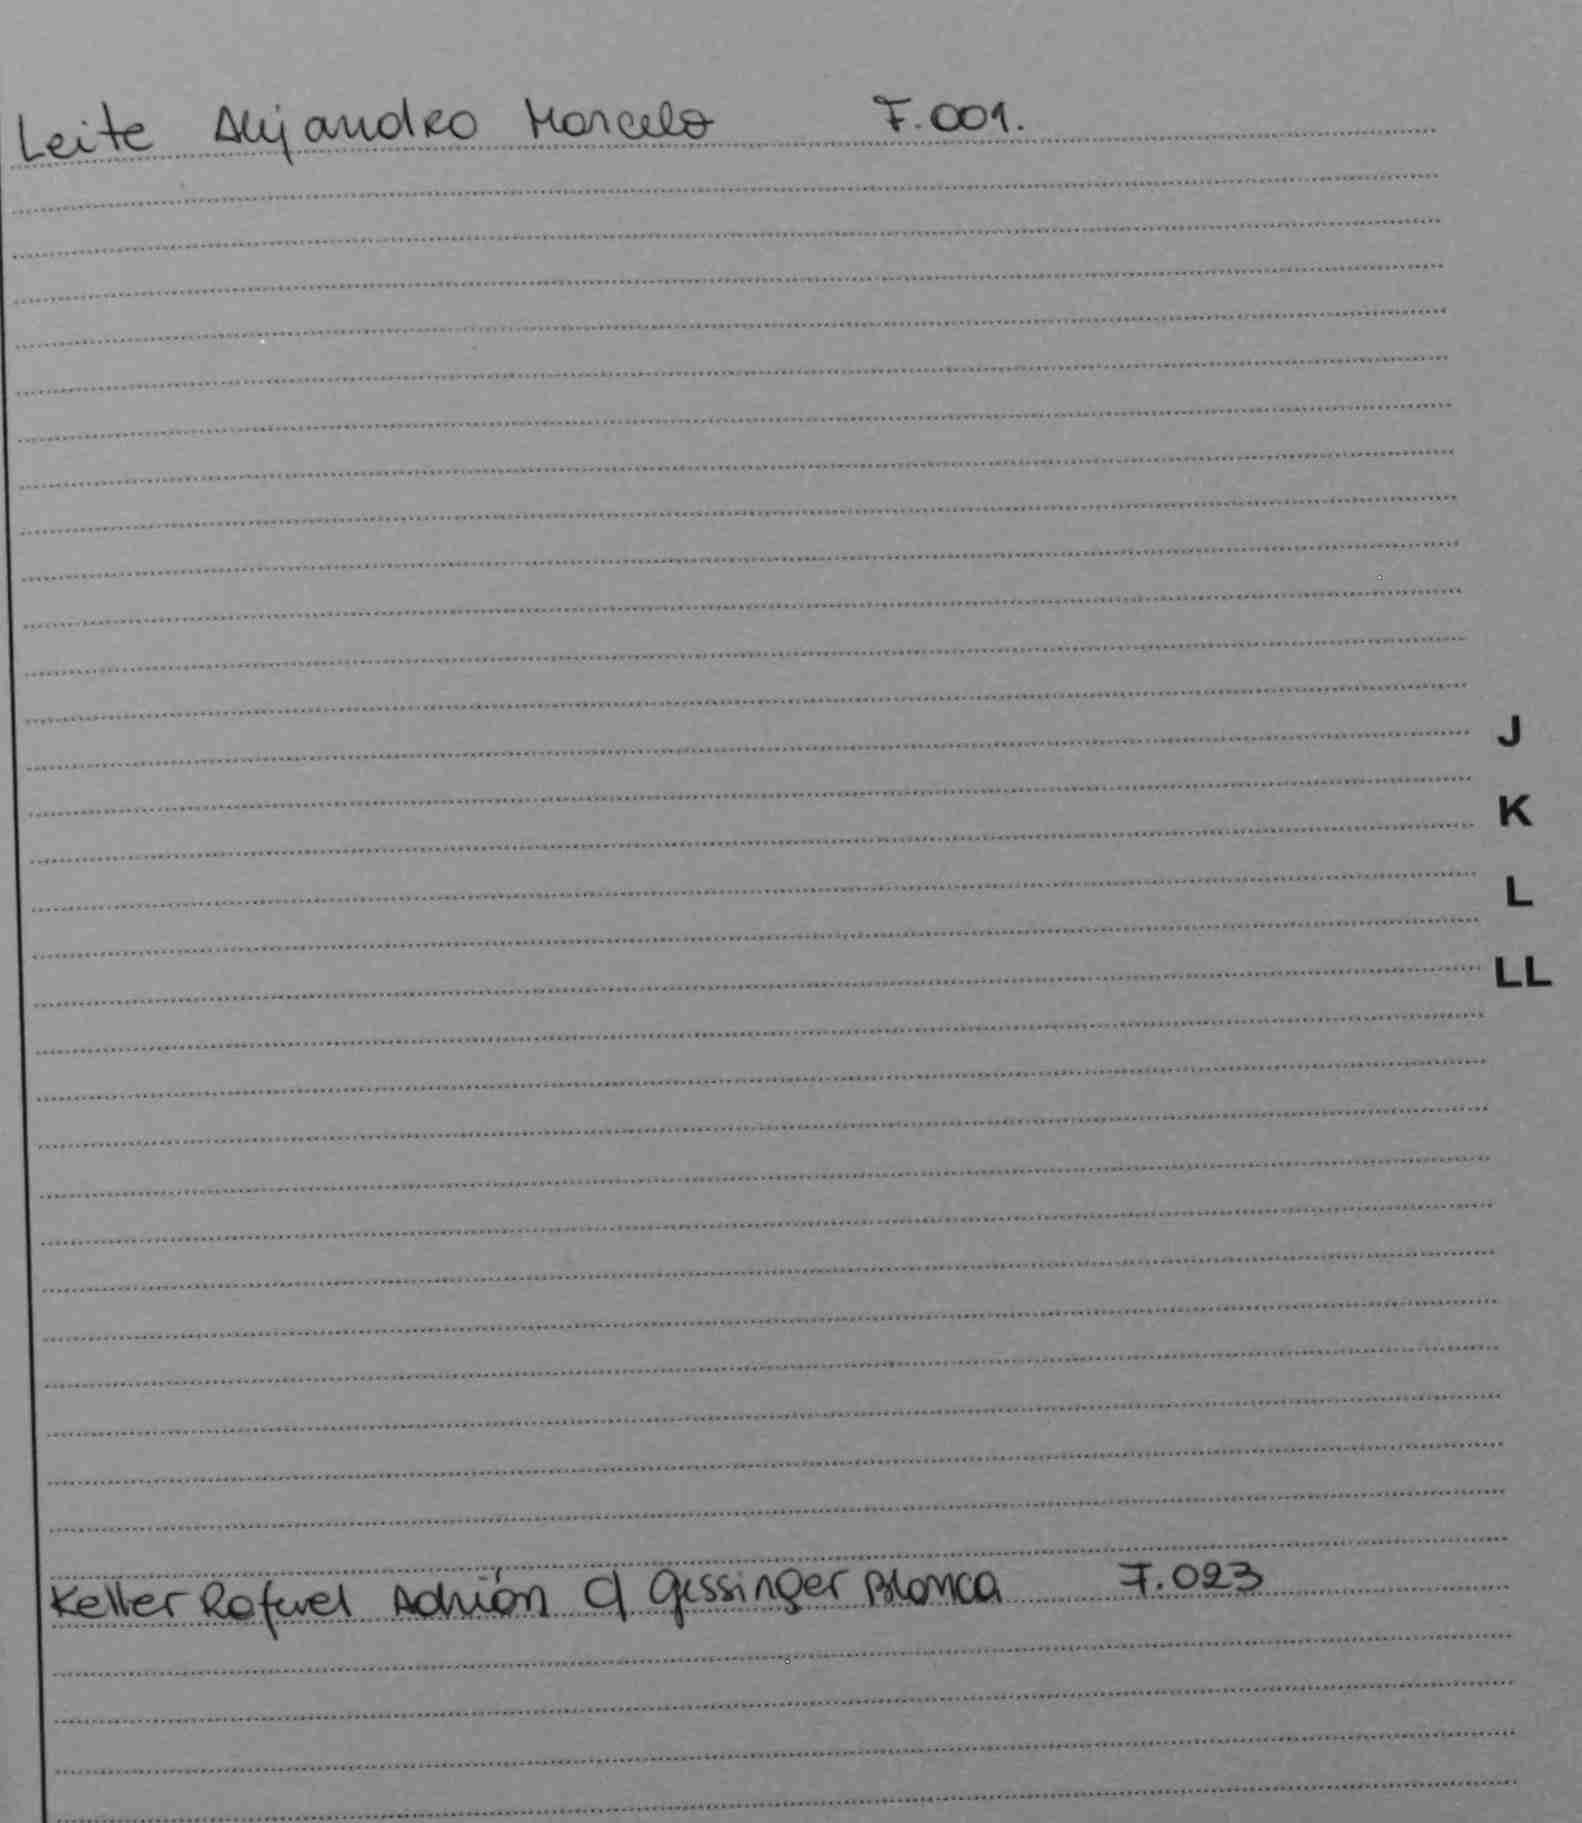 Leite Alejandro Marcelo F.001.
J
K
L
LL
Keller Rafael Adrián c/ Gessinger Blanca F.023